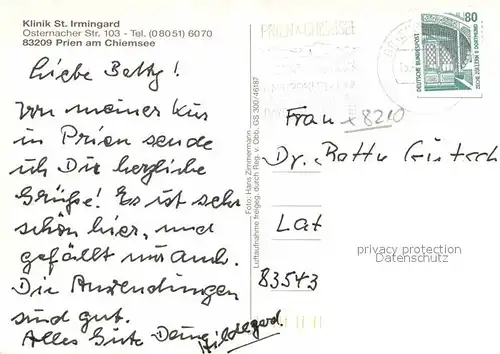 Klinik St. Irmingard
Osternacher Str. 103 - Tel. (08051) 6070
83209 Prien am Chiemsee
Liebe Betty!
Von meiner Kur
in Prien sende
ich Dir herzliche
Grüße! Es ist sehr
schön hier, und
gefällt mir auch.
Die Anwendungen
sind gut.
Alles Gute Deine Hildegard.
Foto: Hans Zimmermann
Luftaufnahme freigeg. durch Reg. v. Obb. GS 300/46187
PRIEN A CHIEMSEE
80
DEUTSCHE BUNDESPOST
ZECHE ZOLLERN II DORTMUND
x8210
Frau
Dr.
83543
privacy protection
Datenschutz